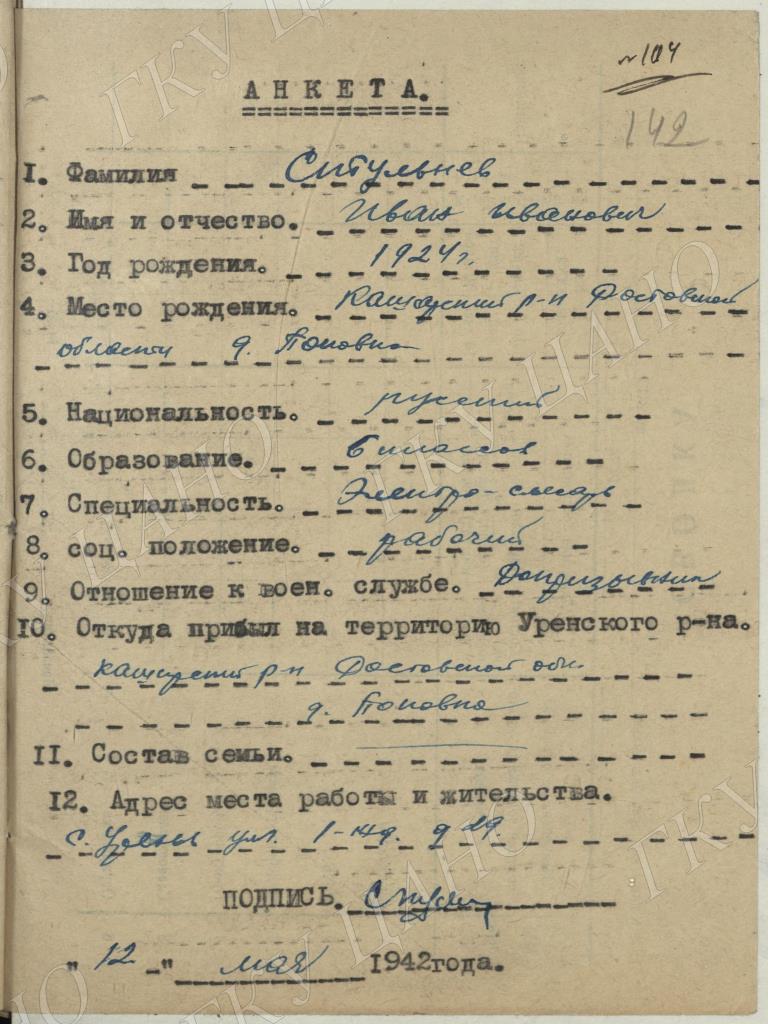 № 104
АНКЕТА.
142
1. Фамилия Ситульнев
2. Имя и отчество. Иван Иванович
3. Год рождения. 1924 г.
4. Место рождения. Кашарский р-н Ростовской
области д. Поповка
5. Национальность. русский
6. Образование. 6 классов
7. Специальность. Электро-слесарь
8. соц. положение. рабочий
9. Отношение к воен. службе. Допризывник
10. Откуда прибыл на территорию Уренского р-на.
Кашарский р-н Ростовской обл.
д. Поповка
11. Состав семьи.
12. Адрес места работы и жительства.
с. Урень ул. д 29.
ПОДПИСЬ.
"12-" мая 1942года.
ГКУ ЦАНО